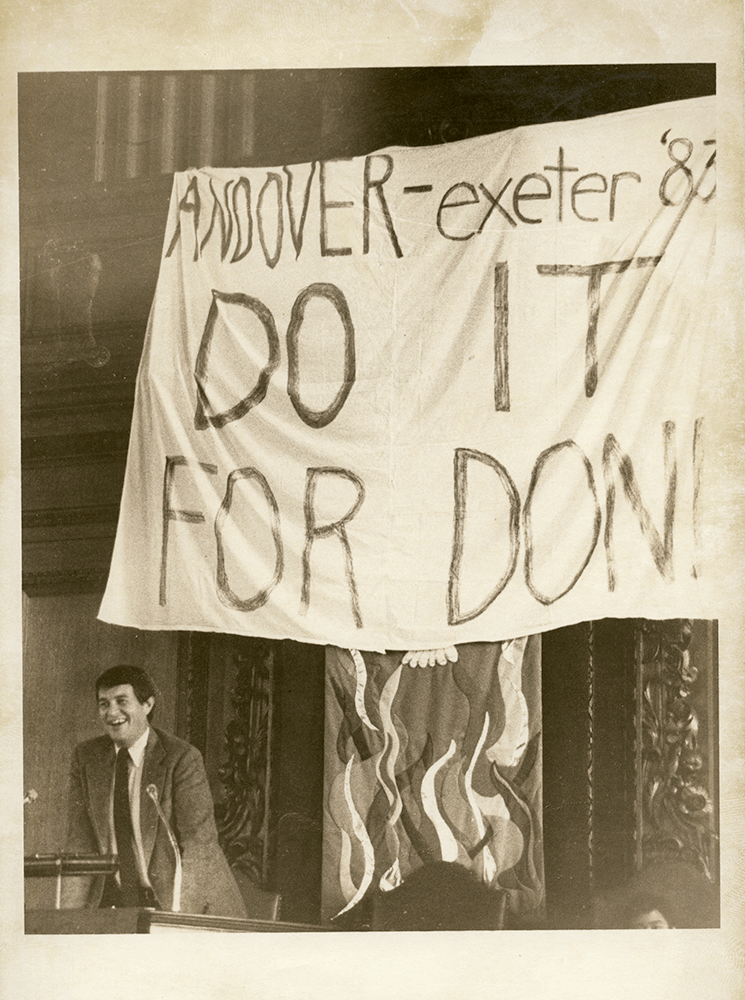 ANDOVER-exeter '83
DO IT
FOR DON!